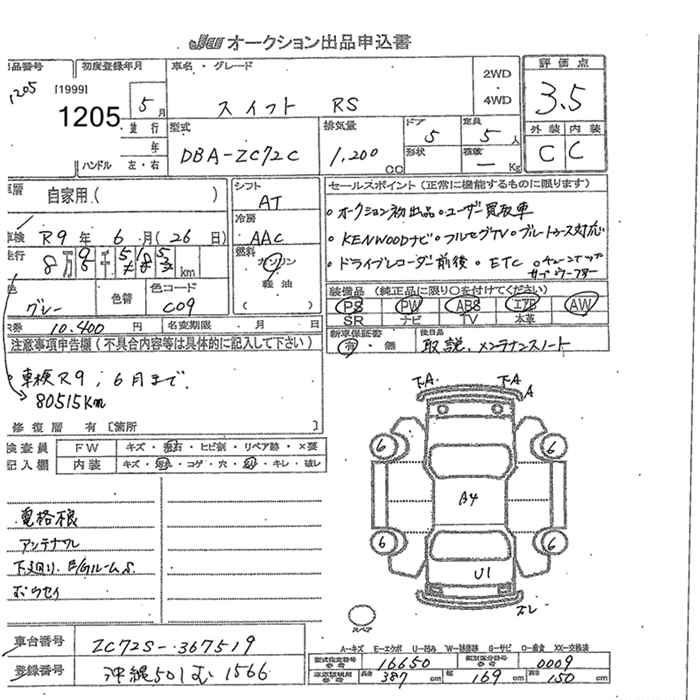 JU オークション出品申込書
出品番号 初度登録年月 車名・グレード 2WD・4WD 評価点
1205 [1999] 1205 5月 スイフト RS 3.5
走行 年 型式 排気量 ドア 定員 外装 内装
ハンドル 左・右 DBA-ZC72C 1,200 CC 5 形状 5人 積載 - Kg C C
車歴 自家用( ) シフト AT
セールスポイント(正常に機能するものに限ります)
車検 R9年6月(26日) 冷房 AAC
・オークション初出品・ユーザー買取車
・KENWOODナビ・フルセグTV・ブルートゥース対応
走行 km 燃料 ガソリン 軽油 ( )
・ドライブレコーダー前後・ETC
色 グレー 色替 色コード C09
装備品(純正品に限り○を付けてください)
PS PW ABS エアB AW
SR ナビ TV 本革
10.400円 名変期限 月 日
新車保証書 有・無 後日品 取説、メンテナンスノート
注意事項申告欄(不具合内容等は具体的に記入して下さい)
・車検R9,6月まで
80515Km
修復歴 有[箇所 ]
検査員記入欄 FW キズ・飛石・ヒビ割・リペア跡・×要
内装 キズ・コゲ・穴・キレ・破レ
下A 下A A
6 6
A4
6 6
U1
スペア
電格根
アンテナワレ
A-キズ E-エクボ U-凹み W-補修跡 S-サビ C-腐食 XX-交換済
車台番号 ZC72S-367519
型式指定番号 参考 16650 類別区分番号 参考 0009
登録番号 沖縄501む1566
長さ 387 cm 幅 169 cm 高さ 150 cm